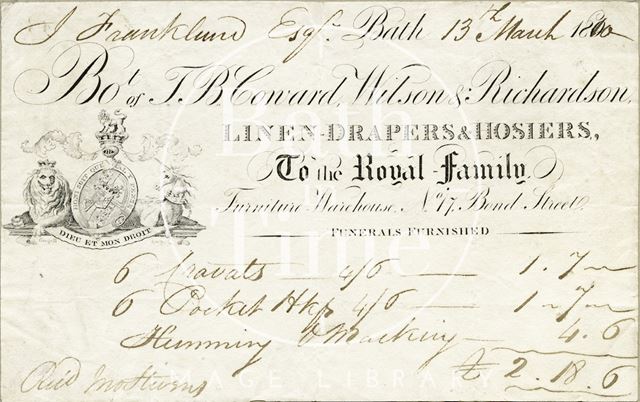 J Frankland Esqr. Bath 13th March 18
Bot. of T. B. Coward, Wilson & Richardson,
LINEN-DRAPERS & HOSIERS,
To the Royal-Family,
Furniture Warehouse, No. 17, Bond Street.
FUNERALS FURNISHED
HONI SOIT QUI MAL Y PENSE
DIEU ET MON DROIT
6 Cravats 4/6 — 1.7 —
6 Pocket Hkfs 4/6 — 1.7 —
Hemming & Marking — 4.6
£ 2.18.6
Bath in Time
IMAGE LIBRARY